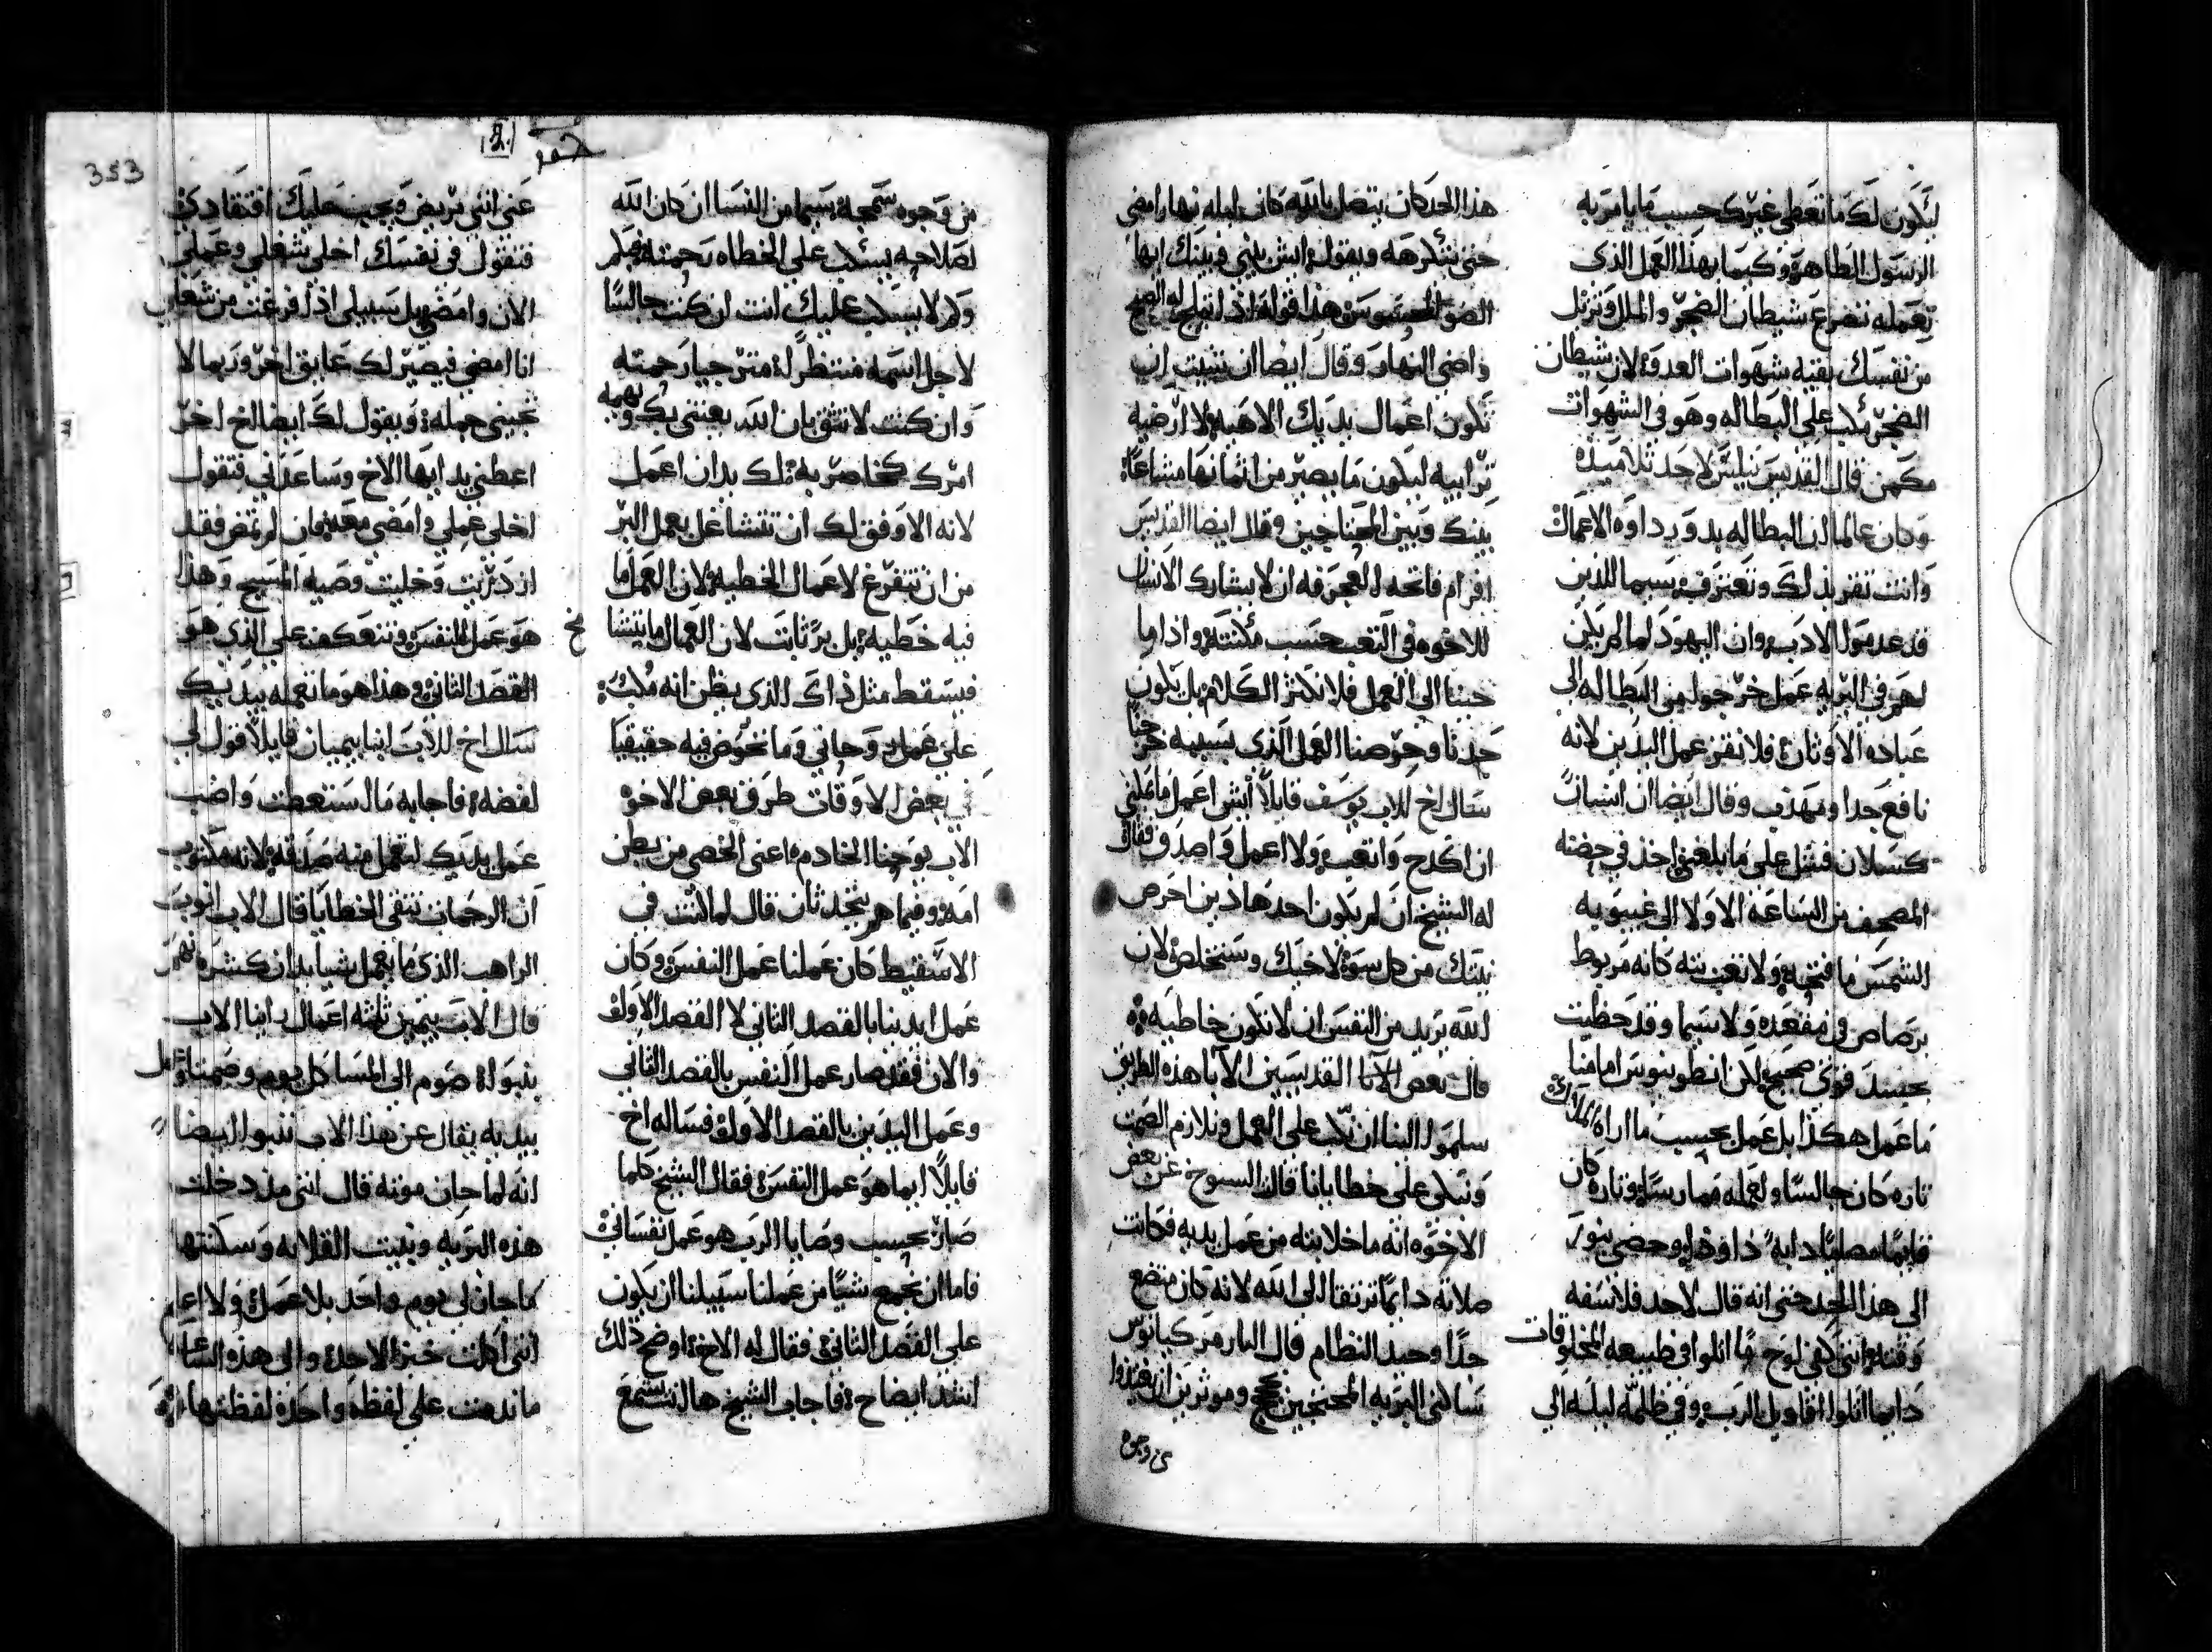 ليكون لك ما تعطي غيرك حسب ما يامر به
الرسول الطاهر وكيما بهذا العمل الذي
تعمله تضرع شيطان الضجر والملل وتزيل
من نفسك بقية شهوات العدو لان شيطان
الضجر يلب على البطاله وهو في الشهوات
مكمن قال القديس نيلس لاحد تلاميذه
وكان عالما ان البطاله بدو رداوه الاعمال
وانت تقر بذلك وتعترف سيما للذين
قد عدمو الادب وان اليهود لما لم يكن
لهم في البريه عمل خرجو من البطاله الى
عباده الاوثان فلا نفر عمل اليدين لانه
نافع جدا ومهذب وقال ايضا ان انسان
كسلان فشل على ما بلغني اخذ في حضنه
المصحف من الساعه الاولا الى غيبوبه
الشمس ما فتحه ولا تغيبته كانه مربوط
برصاص في مقعده ولا سيما وقد حظيت
بجسد قوي صحيح لكن انطونيوس اما فيا
ما عمل هكذا بل عمل بحسب ما اراه الملاك
تاره كان جالسا ولعمله ممارسا وتاره كان
قايما مصليا دايما
الى هذا الحد حتى انه قال لاحد فلاسفه
وقته انني كفي لوح ما اتلوا في طبيعه المخلوقات
دايما اتلوا اقاويل الرب وفي ظلمة ليله الى
هذا الحد كان يتصل بالله كان ليله نهارا مضي
حتى يتكرهه ويقول ايش بيني وبينك ايها
الضو المحسوس هذا قوله اذ لم يلج له الصبح
واضي النهار وقال ايضا ان شيت ان
تكون اعمال يديك الاهيه لا ارضيه
ترابيه ليكون ما يصير من اثمانها مشاعا
بينك وبين المحتاجين وقال ايضا القديس
افرام فاتحه العجرفه ان لا يشارك الانسان
للاخوه في التعب حسب مكنته واذا ما
جينا الى العمل فلا نكثر الكلام بل يكون
حدثا وحرصنا العمل الذي بسببه خرجنا
سال اخ للاب يوسف قايلا ايش اعمل ما يمكنني
ان اكدح واتعب ولا اعمل واصدق فقال
له الشيخ ان لم يكون احد هاذين احرص
نيتك من كل سوء لاخيك وستخلص لان
الله يريد من النفس ان لا تكون خاطيه
قال بعض الابا القديسين الابا هذه الطريق
سلمو الينا ان نكب على العمل ونلازم الصمت
ونبكي على خطايانا قال الشيوخ عن بعض
الاخوه انه ما خلا بته من عمل يديه فكانت
صلاته دايما ترتقا الى الله لانه كان متضع
جدا وجيد النظام قال البار مركيانوس
ساكني البريه
ي وجوه
من وجوه سمجه سيما من النسا ان كان الله
لصلاحه يسكب على الخطاه رحمته فلم
ولم لا يسكب عليك انت ان كنت جالسا
لاجل اسمه منتظرا مترجيا رحمته
وان كنت لا تثق بان الله يعتني بك ويهمه
امرك كخاصر به لك بد ان اعمل
لانه الاوفق لك ان تتشاغل بعمل البر
من ان تتفرغ لاعمال الخطيه لان العمل ما
فيه خطيه بل بر ثابت لان العمال ما ينشا
فيسقط مثل ذاك الذي يظن انه مكب
على عمل روحاني وما نخوض فيه حقيقيا
في بعض الاوقات طرق بعض الاخوه
الاب يوحنا الخادم اعني الخصي من بطن
امه وفيما هم يتحدثان قال لما كنت في
الاسقيط كان عملنا عمل النفس وكان
عمل ايدينا بالقصد الثاني لا القصد الاول
والان فقد صار عمل النفس بالقصد الثاني
وعمل اليدين بالقصد الاول فساله اخ
قايلا ايما هو عمل النفس فقال الشيخ كلما
صار بحسب وصايا الرب هو عمل نفساني
فاما ان نجمع شيا من عملنا سبيلنا ان يكون
على القصد الثاني فقال له الاخ اوضح ذلك
اشد ايضاح فاجاب الشيخ ها انت تسمع
عني انني مريض ويجب عليك افتقادي
فتقول في نفسك اخلي شغلي وعملي
الان وامضي بل سبيلي اذا فرغت من شغلي
انا امضي فيصير لك عايق اخر وربما لا
تجيني جمله ويقول لك ايضا اخ اخر
اعطني يد ايها الاخ وساعدني فتقول
اخلي عملي وامضي معه فان لم تمض فقد
ازدريت وخليت وصيه المسيح وهذا
هو عمل النفس وتتعكف على الذي هو
القصد الثاني وهذا هو ما تعمله بيديك
سال اخ للاب انبا بيميان قايلا قول لي
لفضه فاجابه مال ستعطت واضب
عمل يديك لتعمل منه صدقه لانه مكتوب
ان الرحمات تنقي الخطايا قال الاب ايوب
الراهب الذي ما يعمل شيا يدان كشره نهم
قال الاب بيمين ثلثه اعمال راينا الاب
بنبوا صوم الى المسا كل يوم وصمتا وعمل
بيديه يقال عن هذا الاب بنبوا ايضا
انه لما حان موته قال انني منذ دخلت
هذه البريه وبنيت القلايه وسكنتها
ما جاز لي يوم واحد بلا عمل ولا اعلم
انني اكلت خبز الاحد والى هذه الساعه
ما ندمت على لفظه واحده لفظتها
353